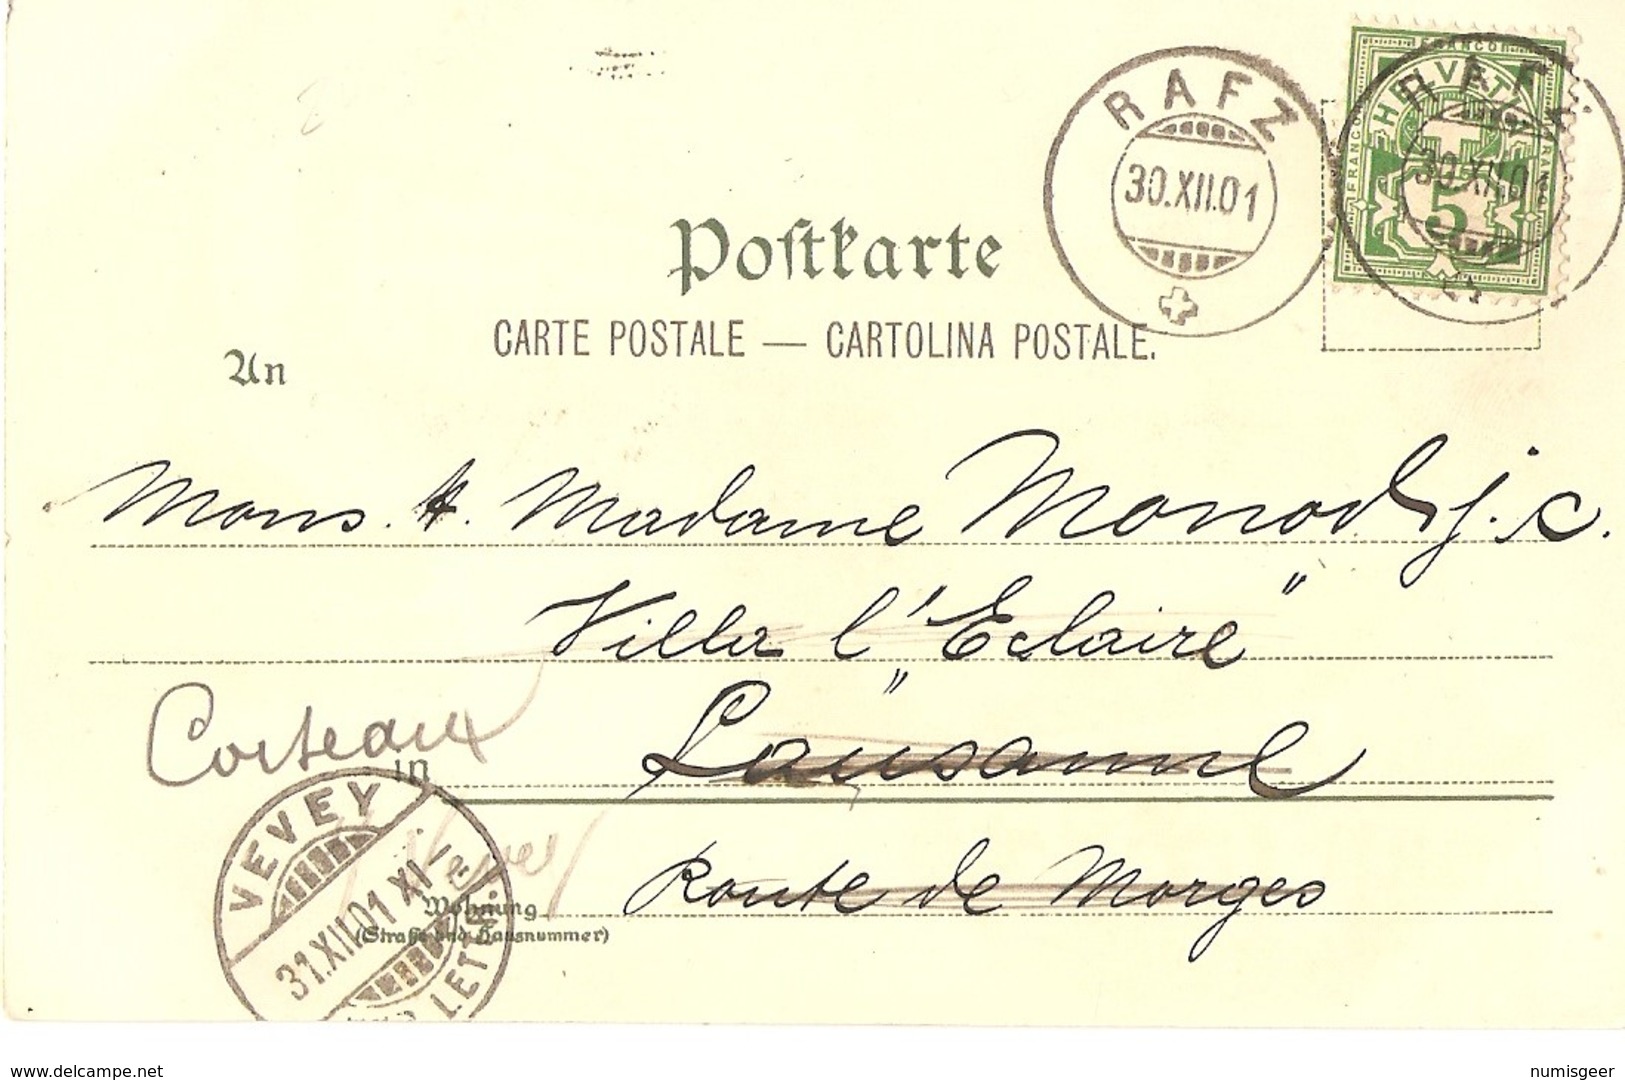 RAFZ
30.XII.01
FRANCO
HELVETIA
FRANCO
FRANCO
5
RAFZ
30.XII.01
Poſtkarte
CARTE POSTALE — CARTOLINA POSTALE.
An
Mons. & Madame Monod
Villa l'"Eclaire"
Corseaux
in Lausanne
VEVEY
31.XII.01 XI
LETTR.
Vevey
Route de Morges
Wohnung
(Straße und Hausnummer)
www.delcampe.net
numisgeer